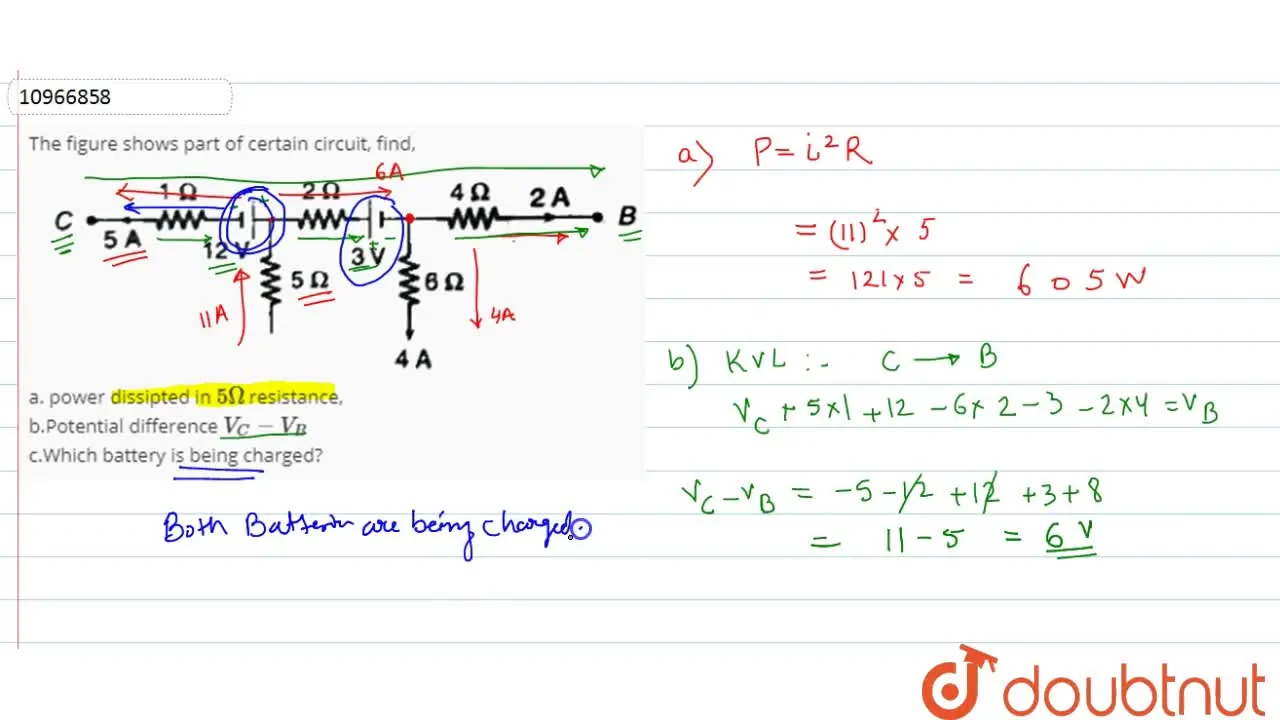 10966858
The figure shows part of certain circuit, find,
6A
1 Ω 2 Ω 4 Ω 2 A
C B
5 A 12 V 3 V
+
+ -
5 Ω 6 Ω
11A 4A
4 A
a. power dissipted in 5Ω resistance,
b.Potential difference V_C − V_B
c.Which battery is being charged?
Both Batterin are being charged
a) P = i² R
= (11)² × 5
= 121 × 5 = 605 W
b) KVL :- C → B
V_C + 5×1 + 12 - 6× 2 - 3 - 2×4 = V_B
V_C - V_B = -5 - 12 + 12 + 3 + 8
= 11 - 5 = 6 V
doubtnut